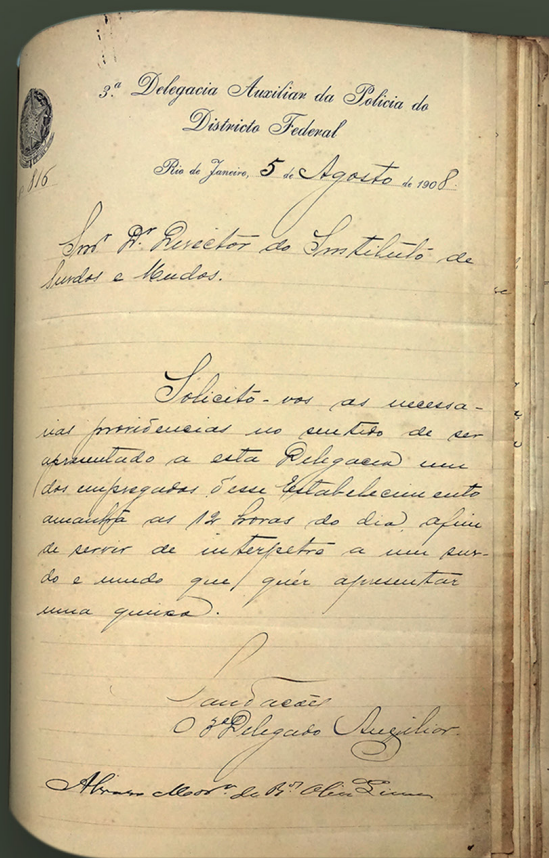 3.ª Delegacia Auxiliar da Policia do
Districto Federal
Rio de Janeiro, 5 de Agosto de 1908.
816
Snr Dr. Director do Instituto de
Surdos e Mudos.
Solicito-vos as necessa-
rias providencias no sentido de ser
apresentado a esta Delegacia um
dos empregados d'esse Estabelecimento
amanhã as 12 horas do dia, afim
de servir de interpetro a um sur-
do e mudo que quér apresentar
uma queixa.
Saudações
O 3º Delegado Auxiliar.
Alvaro de